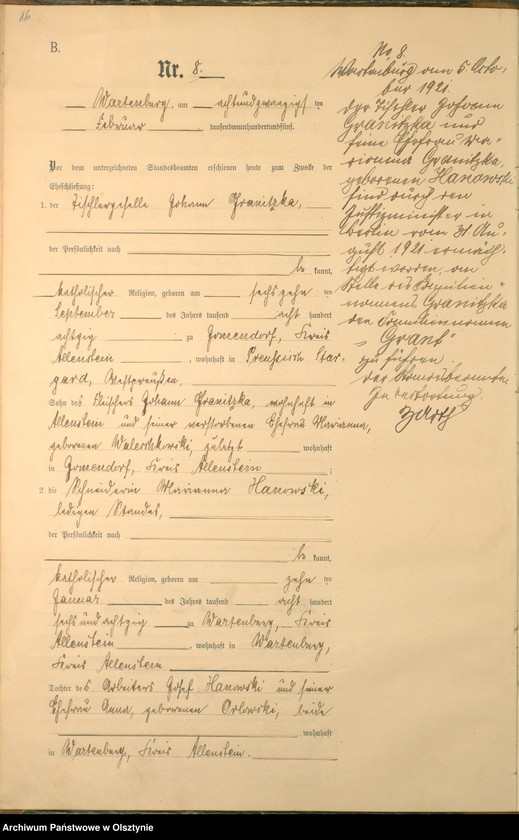 16
B.
Nr. 8.
Wartenburg, am achtundzwanzigsten
Februar tausendneunhundertundfünf.
Vor dem unterzeichneten Standesbeamten erschienen heute zum Zwecke der
Eheschließung:
1. der Tischlergeselle Johann Granitzka,
der Persönlichkeit nach
be kannt,
katholischer Religion, geboren am sechszehn ten
September des Jahres tausend acht hundert
achtzig zu Gomendorf, Kreis
Allenstein, wohnhaft in Preußisch Star-
gard, Westpreußen,
Sohn des Fleischers Johann Granitzka, wohnhaft in
Allenstein und seiner verstorbenen Ehefrau Marianna,
geborenen zuletzt wohnhaft
in Gomendorf, Kreis Allenstein ;
2. die Schneiderin Marianna Hanowski,
ledigen Standes,
der Persönlichkeit nach
be kannt,
katholischer Religion, geboren am zehn ten
Januar des Jahres tausend acht hundert
sechsundachtzig zu Wartenburg, Kreis
Allenstein, wohnhaft in Wartenburg,
Kreis Allenstein
Tochter des Arbeiters Josef Hanowski und seiner
Ehefrau Anna, geborenen Orlowski, beide
wohnhaft
in Wartenburg, Kreis Allenstein.
No 8.
Wartenburg am 5 Okto-
ber 1921.
Der Tischler Johann
Granitzka und
seine Ehefrau Ma-
rianna Granitzka,
geborenen Hanowski
sind durch den
Justizminister in
Berlin vom 31 Au-
gust 1921 ermäch-
tigt worden, an
Stelle des Familien-
namens Granitzka
den Familiennamen
"Grant"
zu führen.
Der Standesbeamte
In Vertretung
Archiwum Państwowe w Olsztynie